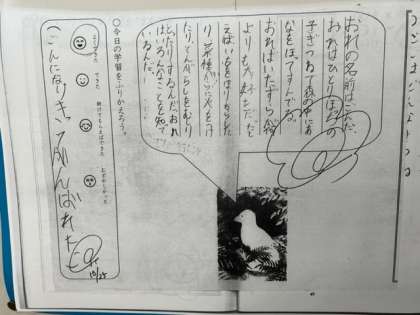 おれの名前は、
おれはひとりぼっちの
子ぎつねで森の中にあ
なをほってすんでる。
おれはいたずらが
よりも大好きだ。たと
えばいもをほりちらした
り、菜種がらに火をつけ
たり、とんがらしをむしり
とったりするんだおれ
はいろんなことを知って
いるんだ!
○今日の学習をふりかえろう。
よくできた
できた
助けてもらえばできた
むずかしかった
ごんになりきってがんばれた
10/25